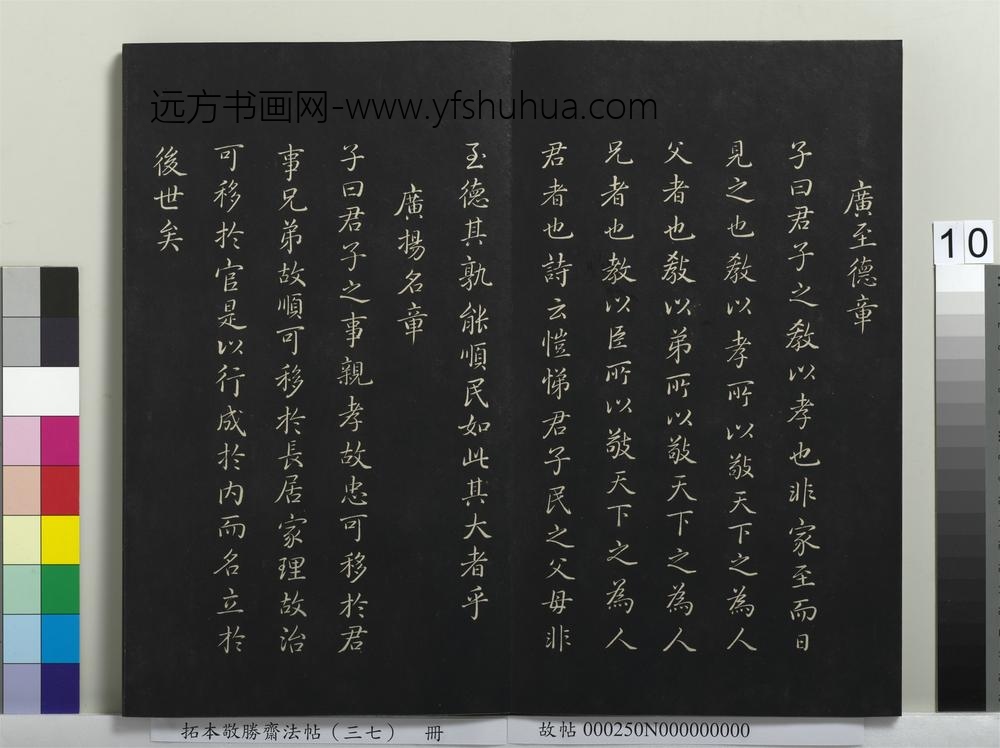 远方书画网-www.yfshuhua.com
廣至德章
子曰君子之教以孝也非家至而日
見之也教以孝所以敬天下之為人
父者也教以弟所以敬天下之為人
兄者也教以臣所以敬天下之為人
君者也詩云愷悌君子民之父母非
至德其孰能順民如此其大者乎
廣揚名章
子曰君子之事親孝故忠可移於君
事兄弟故順可移於長居家理故治
可移於官是以行成於内而名立於
後世矣
10
拓本敬勝齋法帖(三七) 冊
故帖 000250N000000000